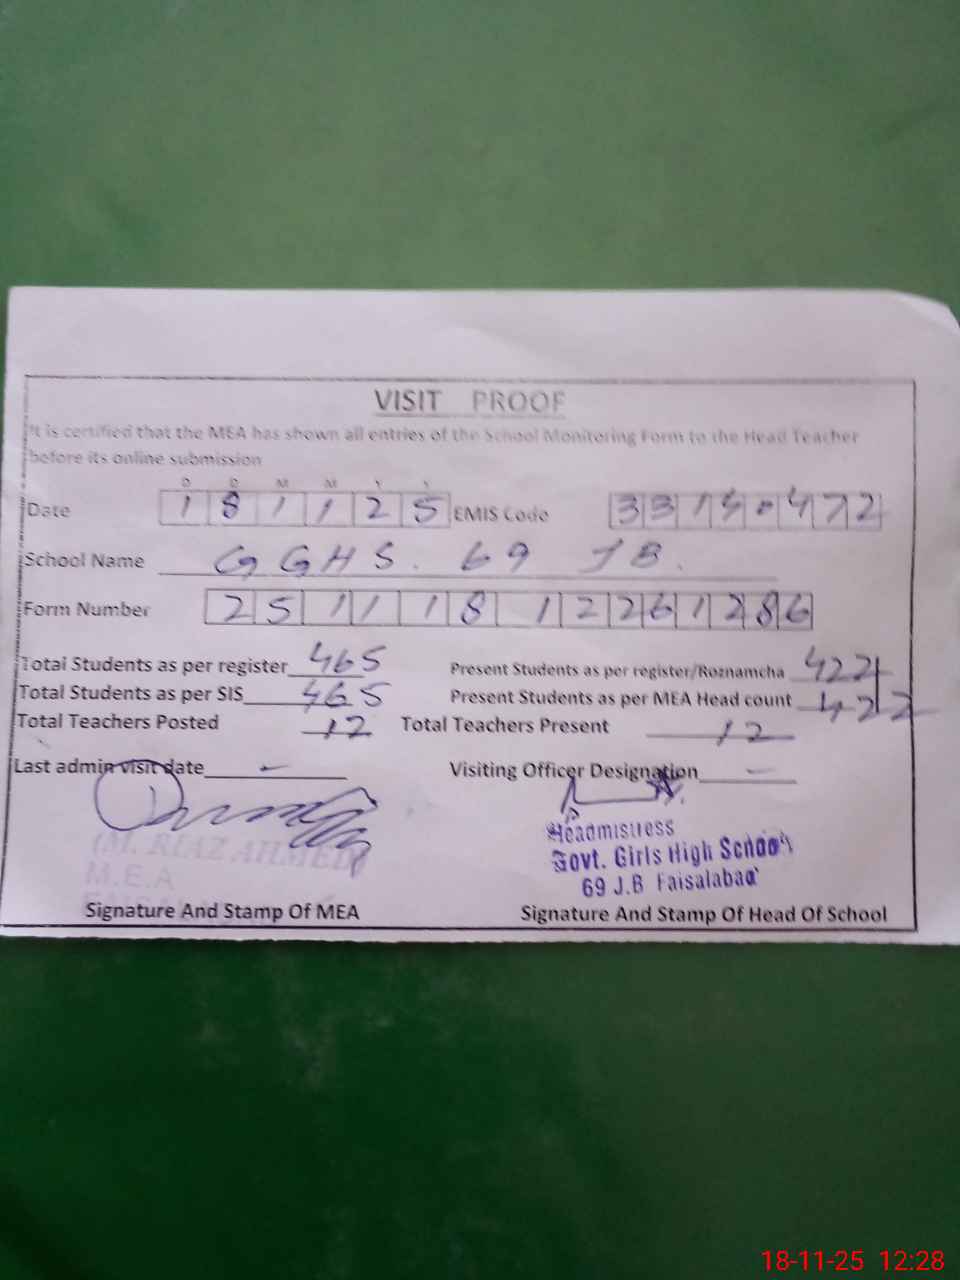 VISIT PROOF
It is certified that the MEA has shown all entries of the School Monitoring Form to the Head Teacher
before its online submission
D D M M Y Y
Date 1 8 1 1 2 5 EMIS Code 3 3 1 4 0 4 7 2
School Name GGHS. 69 JB.
Form Number 2 5 1 1 1 8 1 2 2 6 1 2 8 6
Total Students as per register 465 Present Students as per register/Roznamcha 422
Total Students as per SIS 465 Present Students as per MEA Head count 422
Total Teachers Posted 12 Total Teachers Present 12
Last admin visit date - Visiting Officer Designation -
(M. RIAZ AHMED)
M.E.A
Headmistress
Govt. Girls High School
69 J.B Faisalabad
Signature And Stamp Of MEA Signature And Stamp Of Head Of School
18-11-25 12:28